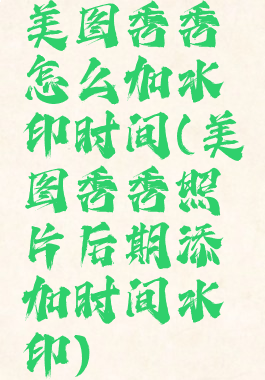 美图秀秀
怎么加水
印时间(美
图秀秀照
片后期添
加时间水
印)